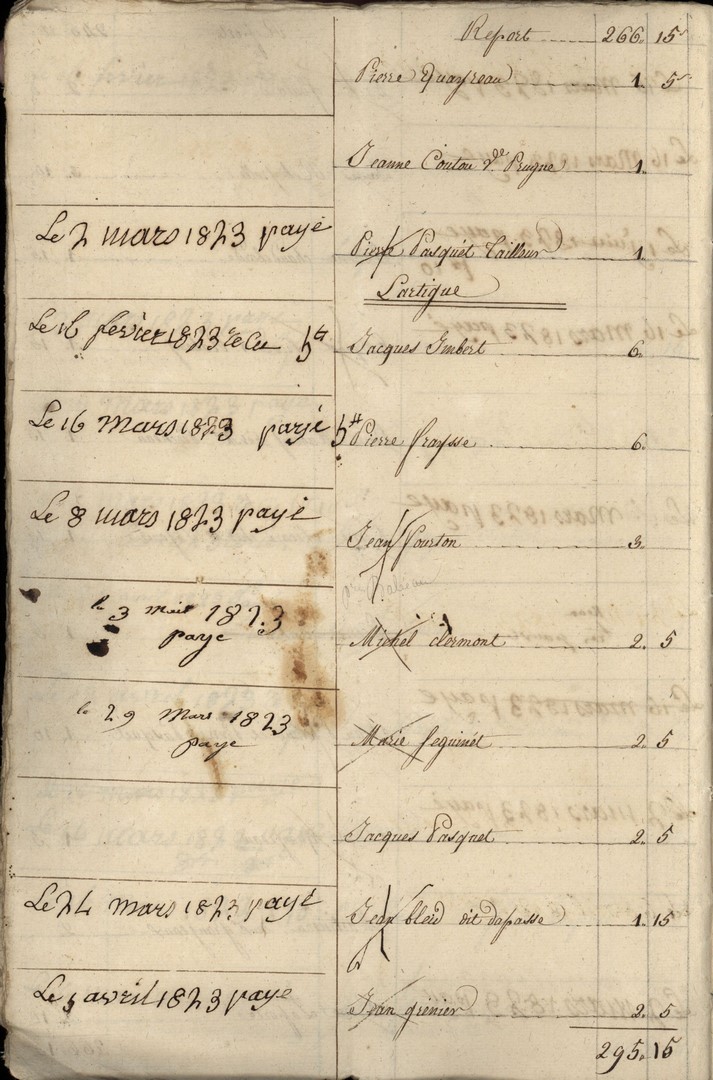 Report 266. 15
Pierre Quayreau 1. 5
Jeanne Coutou Vde Prugne 1.
Le 2 mars 1823 payé
Pierre Pasquet tailleur 1.
Lartigue
Le 16 fevrier 1823 recu 5#
Jacques Imbert 6.
Le 16 mars 1823 payé 5#
Pierre fraysse 6.
Le 8 mars 1823 payé
Jean fourton 3.
le 3 mai 1823
paye
Michel clermont 2. 5
le 29 Mars 1823
paye
Marie seguinet 2. 5
Jacques Pasquet 2. 5
Le 24 mars 1823 payé
Jean bleid dit dapasse 1. 15
Le 5 avril 1823 paye
Jean grenier 2. 5
295. 15